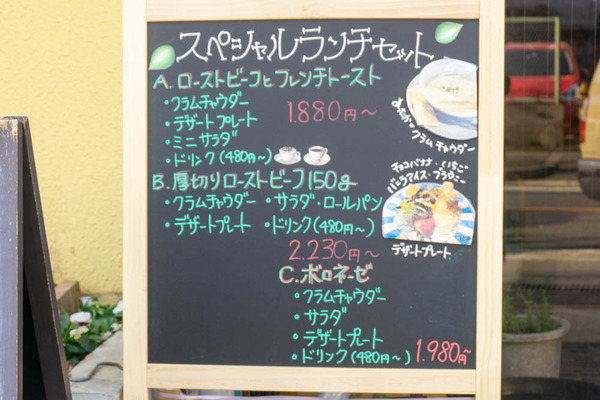 スペシャルランチセット
A. ローストビーフとフレンチトースト
・クラムチャウダー
・デザートプレート
・ミニサラダ
・ドリンク(480円〜)
1.880円〜
あったかクラムチャウダー
B. 厚切りローストビーフ150g
・クラムチャウダー ・サラダ・ロールパン
・デザートプレート ・ドリンク(480円〜)
2.230円〜
チョコバナナ・いちご
バニラアイス・ブラウニー
デザートプレート
C. ボロネーゼ
・クラムチャウダー
・サラダ
・デザートプレート
・ドリンク(480円〜)
1.980円〜